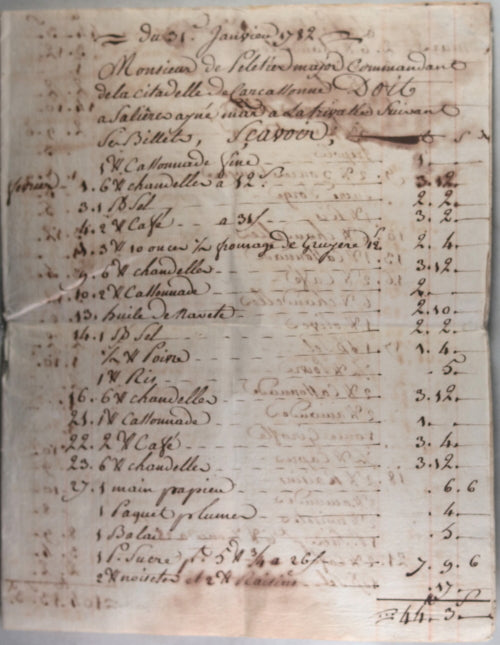 du 31 Janvier 1782
Monsieur de Peletier major Commandant
de la citadelle de Carcassonne Doit
a Saliere ayné mar. a La Suivant
Ses Billets, Sçavoir,
1 ℔ Cassonnade fine 1.
fevrier 1. 6 ℔ chandelles a 12 s 3. 12.
3. 1 Sel 2. 2.
4. 2 ℔ Café a 31 s 3. 2.
3 ℔ 10 onces ½ fromage de Gruyere 2. 4.
9. 6 ℔ chandelles 3. 12.
10. 2 ℔ Cassonnade 2.
13. huile de Navete 2. 10.
14. 1 Sel 2. 2.
½ ℔ Poivre 1. 4.
1 ℔ Ris 5.
16. 6 ℔ chandelles 3. 12.
21. 1 ℔ Cassonnade 1.
22. 2 ℔ Café 3. 4.
23. 6 ℔ chandelles 3. 12.
27. 1 main papier 6. 6
1 Paquet plumes 4.
1 Balai 5.
1 P. Sucre p. 5 ℔ ¾ a 26 s 7. 9. 6
2 ℔ noisetes et 2 ℔ Raisins 17.
44. 3.